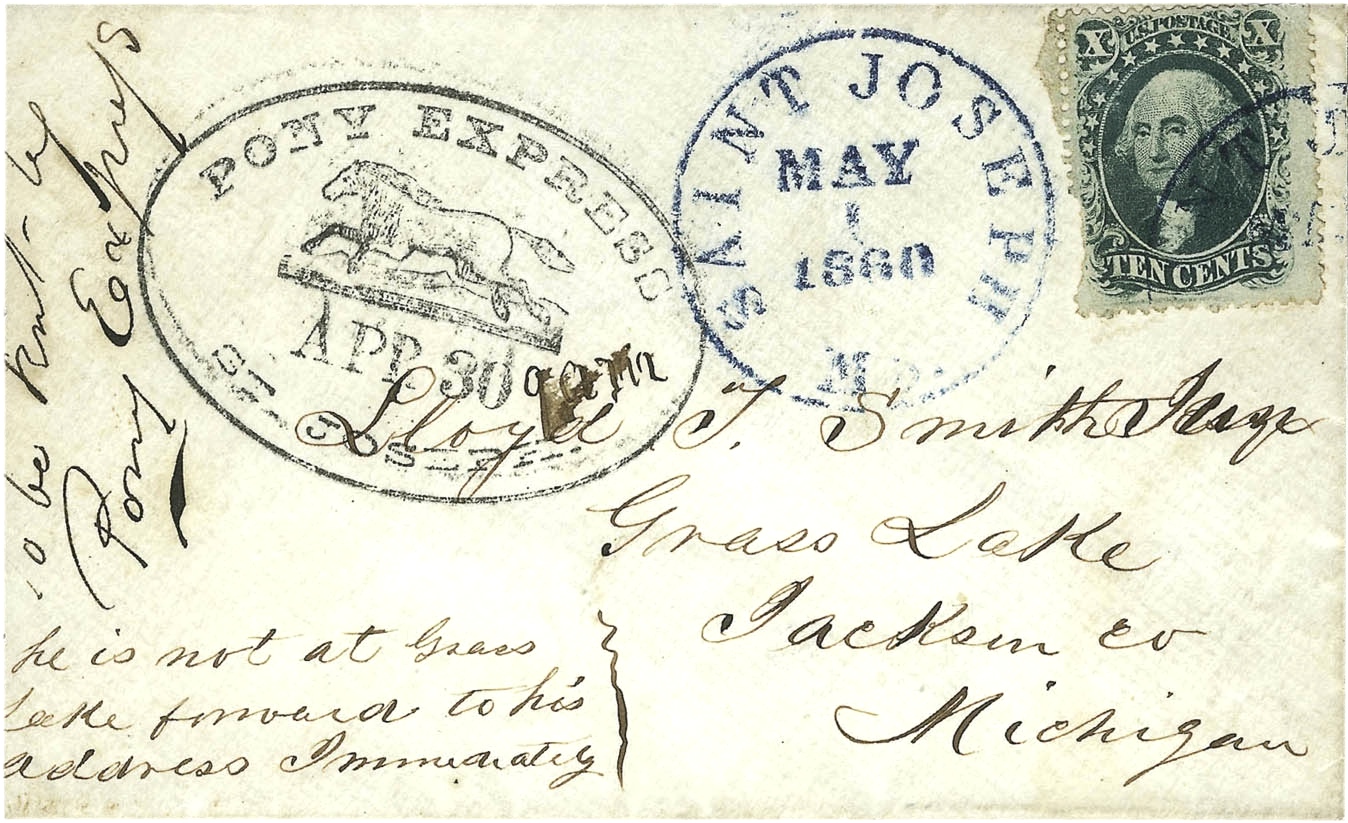 to be sent by
Pony Express
PONY EXPRESS
APR. 30
ST. JOSEPH
SAINT JOSEPH
MAY
1
1860
Mo.
X U.S. POSTAGE X
TEN CENTS
NT J
Lloyd T. Smith
Grass Lake
Jackson co
Michigan
he is not at Grass
Lake forward to his
address Immediately